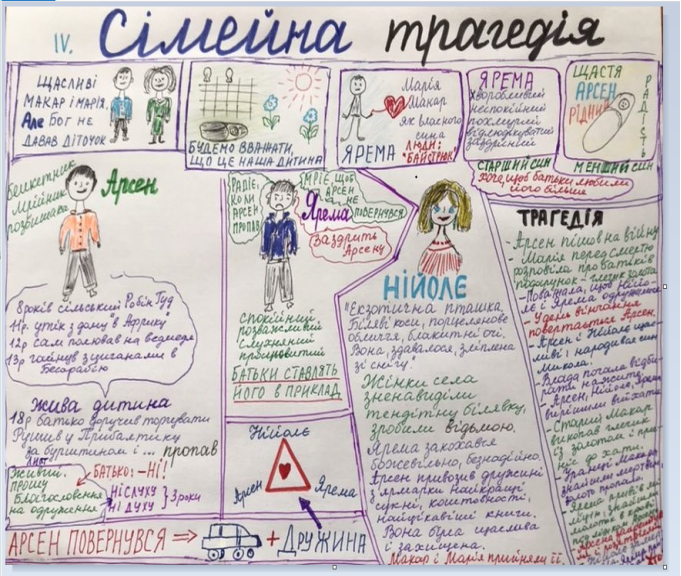 IV. Сімейна трагедія
ЩАСЛИВІ
МАКАР і МАРІЯ.
Але БОГ НЕ
ДАВАВ ДІТОЧОК
БУДЕМО ВВАЖАТИ,
ЩО ЦЕ НАША ДИТИНА
Марія
Макар
як власного
сина
ЛЮДИ:
"БАЙСТРЮК"
ЯРЕМА
ЯРЕМА
хворобливий
неспокійний
похмурий
відлюдкуватий
заздрісний
СТАРШИЙ СИН
хоче, щоб батьки любили
його більше
ЩАСТЯ
АРСЕН
РІДНИЙ
РАДІСТЬ
МЕНШИЙ СИН
Бешкетник
мрійник
розбишака
Арсен
8 років сільський Робін Гуд
11р. утік з дому "в Африку"
12р сам полював на ведмедя
13р гайнув з циганами в
Бесарабію
Жива дитина
18р батько доручив торгувати
Рушив у Прибалтику
за бурштином і ... пропав
ЛИСТ
Живий.
прошу
благословення
на одруження
БАТЬКО: -НІ!
НІ СЛУХУ
НІ ДУХУ
3 роки
РАДІЄ,
КОЛИ
АРСЕН
ПРОПАВ
МРІЄ, ЩОБ
АРСЕН
НЕ
ПОВЕРНУВСЯ
Ярема
Заздрить
Арсену
СПОКІЙНИЙ,
розважливий
слухняний
працьовитий
БАТЬКИ СТАВЛЯТЬ
ЙОГО В ПРИКЛАД
Нійолє
Арсен
Ярема
АРСЕН ПОВЕРНУВСЯ ⇒ + ДРУЖИНА
НІЙОЛЕ
"Екзотична пташка.
Біляві коси, порцелянове
обличчя, блакитні очі.
Вона, здавалося, зліплена
зі снігу."
Жінки села
зненавиділи
тендітну білявку,
зробили відьмою.
Ярема закохався
божевільно, безнадійно.
Арсен привозив дружині
з ярмарки найкращі
сукні, коштовності,
найцікавіші книги.
Вона була щаслива
і захищена.
Макар і Марія прийняли її.
ТРАГЕДІЯ
- Арсен пішов на війну
- Марія перед смертю
розповіла про батьків
подарунок - глечик золота
- Поважала, щоб Нійо-
лє і Ярема одружились
- У день вінчання
повертається Арсен.
- Арсен і Нійоле щас-
ливі, народився син
Микола.
- Влада почала відби-
рати нажите.
- Арсен, Нійоле, Ярема
вирішили виїхати
- Старий Макар
викопав глечик
із золотом і при-
ніс до хати.
- Вранці Макара
знайшли мертвим,
золото пропало.